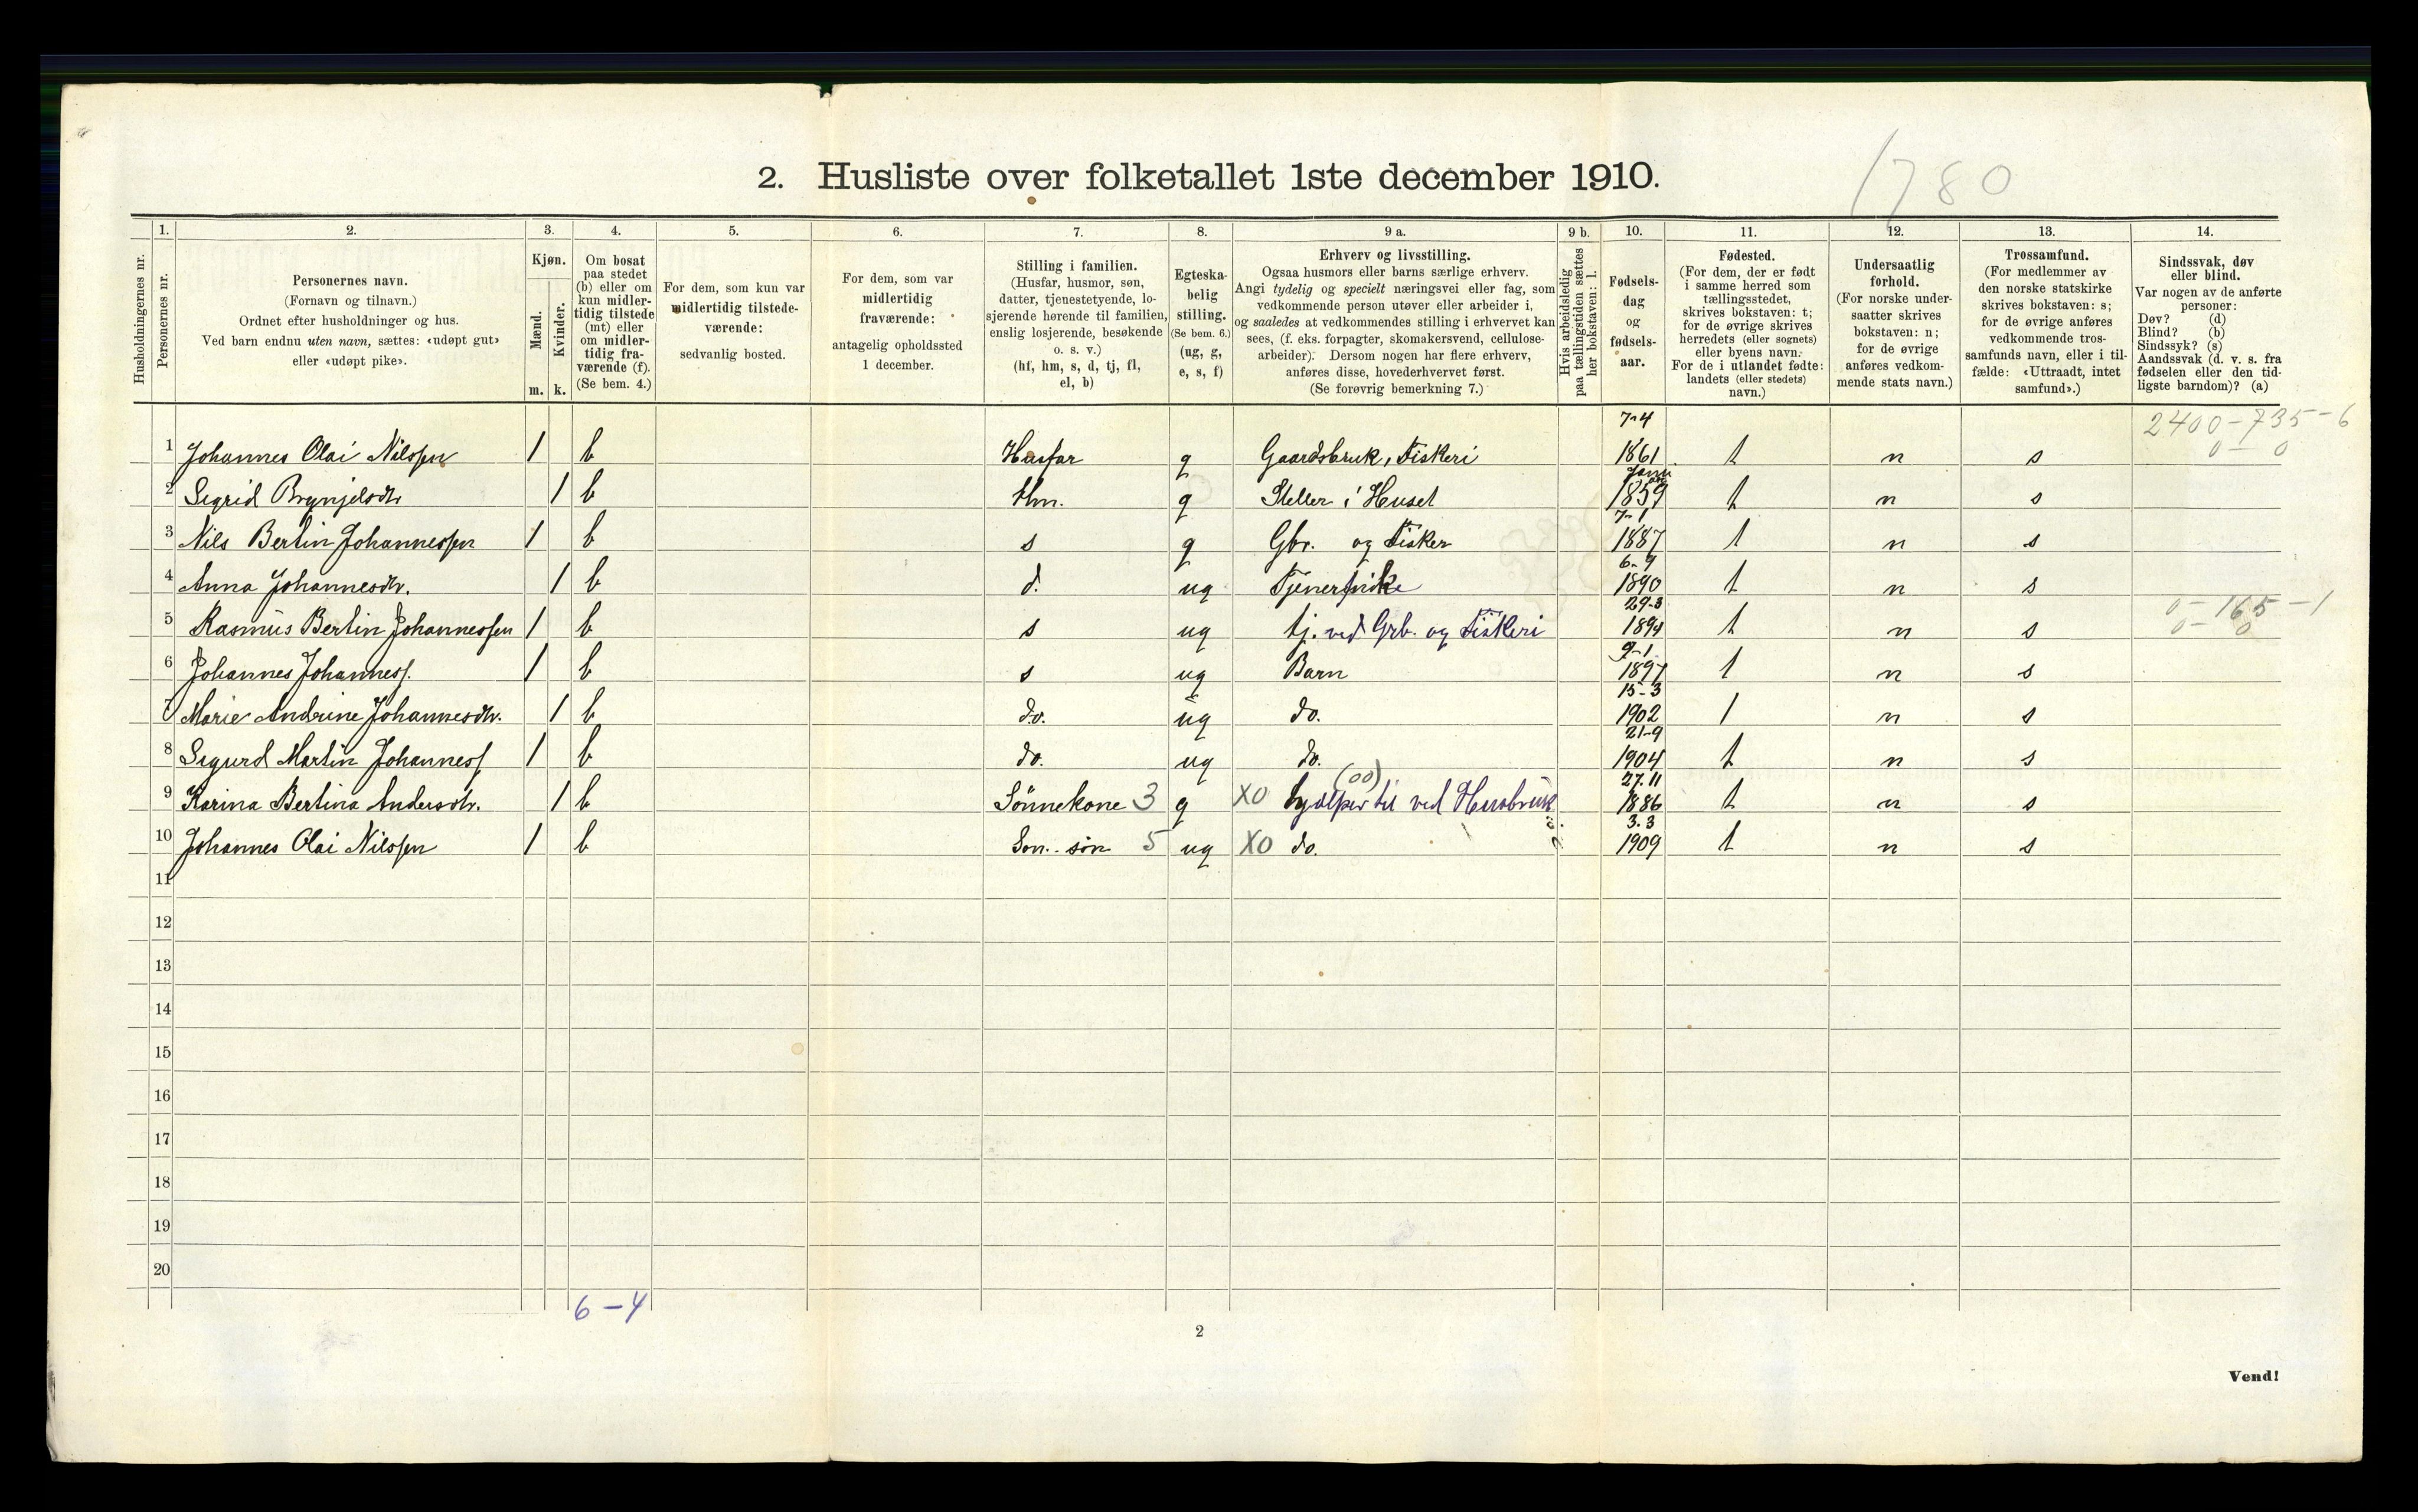 1780
2. Husliste over folketallet 1ste december 1910.
1. 2. 3. 4. 5. 6. 7. 8. 9 a. 9 b. 10. 11. 12. 13. 14.
Husholdningernes nr.
Personernes nr.
Personernes navn.
(Fornavn og tilnavn.)
Ordnet efter husholdninger og hus.
Ved barn endnu uten navn, sættes: «udøpt gut»
eller «udøpt pike».
Kjøn.
Mænd.
Kvinder.
m. k.
Om bosat
paa stedet
(b) eller om
kun midler-
tidig tilstede
(mt) eller
om midler-
tidig fra-
værende (f).
(Se bem. 4.)
For dem, som kun var
midlertidig tilstede-
værende:
sedvanlig bosted.
For dem, som var
midlertidig
fraværende:
antagelig opholdssted
1 december.
Stilling i familien.
(Husfar, husmor, søn,
datter, tjenestetyende, lo-
sjerende hørende til familien,
enslig losjerende, besøkende
o. s. v.)
(hf, hm, s, d, tj, fl,
el, b)
Egteska-
belig
stilling.
(Se bem. 6.)
(ug, g,
e, s, f)
Erhverv og livsstilling.
Ogsaa husmors eller barns særlige erhverv.
Angi tydelig og specielt næringsvei eller fag, som
vedkommende person utøver eller arbeider i,
og saaledes at vedkommendes stilling i erhvervet kan
sees, (f. eks. forpagter, skomakersvend, cellulose-
arbeider). Dersom nogen har flere erhverv,
anføres disse, hovederhvervet først.
(Se forøvrig bemerkning 7.)
Hvis arbeidsledig
paa tællingstiden sættes
her bokstaven: l.
Fødsels-
dag
og
fødsels-
aar.
Fødested.
(For dem, der er født
i samme herred som
tællingsstedet,
skrives bokstaven: t;
for de øvrige skrives
herredets (eller sognets)
eller byens navn.
For de i utlandet fødte:
landets (eller stedets)
navn.)
Undersaatlig
forhold.
(For norske under-
saatter skrives
bokstaven: n;
for de øvrige
anføres vedkom-
mende stats navn.)
Trossamfund.
(For medlemmer av
den norske statskirke
skrives bokstaven: s;
for de øvrige anføres
vedkommende tros-
samfunds navn, eller i til-
fælde: «Uttraadt, intet
samfund».)
Sindssvak, døv
eller blind.
Var nogen av de anførte
personer:
Døv? (d)
Blind? (b)
Sindssyk? (s)
Aandssvak (d. v. s. fra
fødselen eller den tid-
ligste barndom)? (a)
7-4 2400-735-6
1 Johannes Olai Nilssen 1 b Husfar g Gaardsbruk, Fiskeri 1861 t n s 0-0
2 Sigrid Brynjelsdtr 1 b Hm. g Steller i Huset 1859 t n s
7-1
3 Nils Bertin Johannessen 1 b s g Gbr. og Fisker 1887 t n s
6-9
4 Anna Johannesdtr. 1 b d. ug Tjenerpike 1890 t n s
29-3 0-165-1
5 Rasmus Bertin Johannessen 1 b s ug tj. ved Grb. og Fiskeri 1894 t n s 0-0
9-1
6 Johannes Johanness. 1 b s ug Barn 1897 t n s
15-3
7 Marie Andrine Johannesdtr. 1 b do. ug do. 1902 t n s
21-9
8 Sigurd Martin Johanness 1 b do. ug do. 1904 t n s
(00) 27.11
9 Karina Bertina Andersdtr. 1 b Sönnekone 3 g XO hjælper til ved Husbruk 1886 t n s
3.3
10 Johannes Olai Nilssen 1 b Son. sön 5 ug XO do. 1909 t n s
11
12
13
14
15
16
17
18
19
20
6-4
2
Vend!